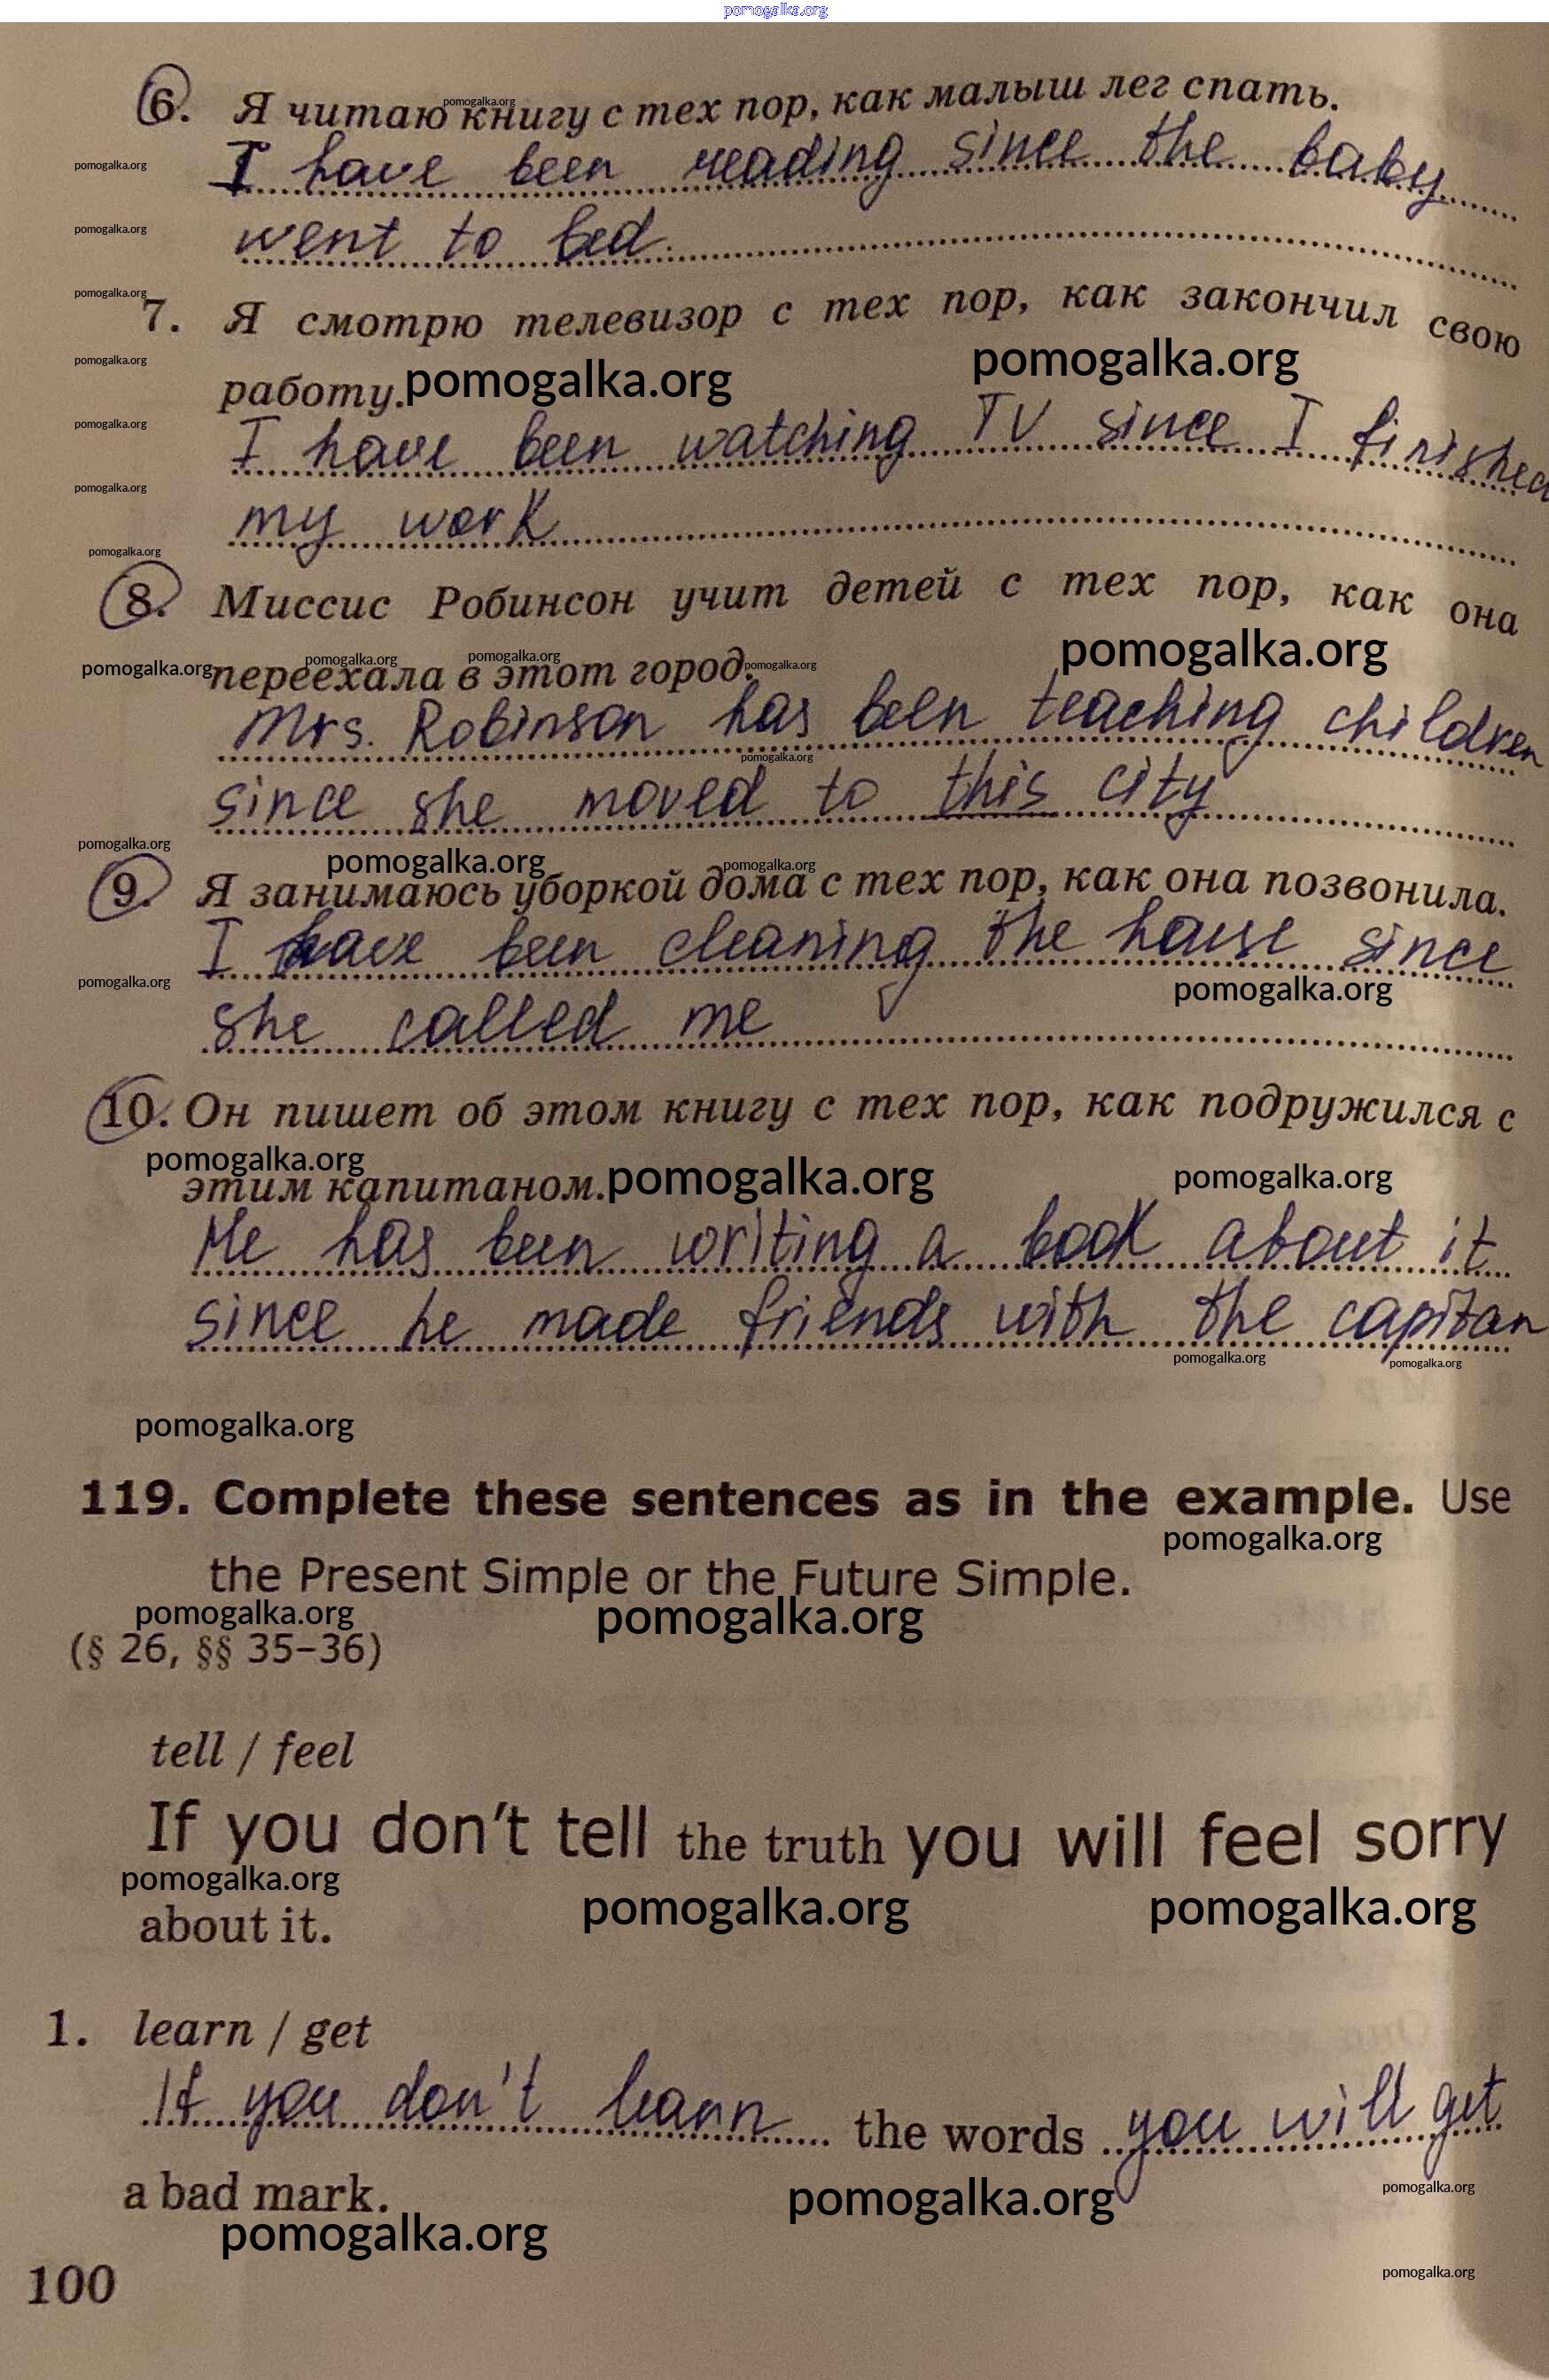 pomogalka.org
6. Я читаю книгу с тех пор, как малыш лег спать.
pomogalka.org
I have been reading since the baby
pomogalka.org
went to bed.
pomogalka.org
pomogalka.org
7. Я смотрю телевизор с тех пор, как закончил свою
pomogalka.org
работу. pomogalka.org pomogalka.org
pomogalka.org
I have been watching TV since I finished
pomogalka.org
my work
pomogalka.org
8. Миссис Робинсон учит детей с тех пор, как она
pomogalka.org
pomogalka.org переехала в этот город. pomogalka.org
pomogalka.org pomogalka.org
Mrs. Robinson has been teaching children
pomogalka.org
since she moved to this city
pomogalka.org
pomogalka.org pomogalka.org
9. Я занимаюсь уборкой дома с тех пор, как она позвонила.
I have been cleaning the house since
pomogalka.org pomogalka.org
she called me
10. Он пишет об этом книгу с тех пор, как подружился с
pomogalka.org
этим капитаном. pomogalka.org pomogalka.org
He has been writing a book about it
since he made friends with the capitan
pomogalka.org pomogalka.org
pomogalka.org
119. Complete these sentences as in the example. Use
pomogalka.org
the Present Simple or the Future Simple.
pomogalka.org pomogalka.org
(§ 26, §§ 35–36)
tell / feel
If you don't tell the truth you will feel sorry
pomogalka.org pomogalka.org pomogalka.org
about it.
1. learn / get
If you don't learn the words you will get
a bad mark. pomogalka.org pomogalka.org
pomogalka.org
100 pomogalka.org